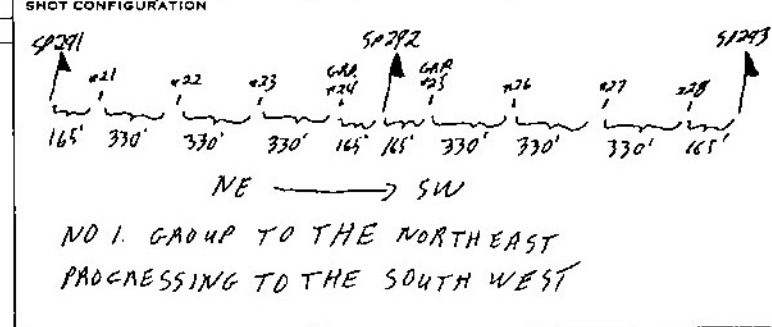 SHOT CONFIGURATION
SP291 SP292 SP293
#21 #22 #23 GRP. #24 GRP #25 #26 #27 #28
165' 330' 330' 330' 165' 165' 330' 330' 330' 165'
NE → SW
NO 1. GROUP TO THE NORTHEAST
PROGRESSING TO THE SOUTH WEST